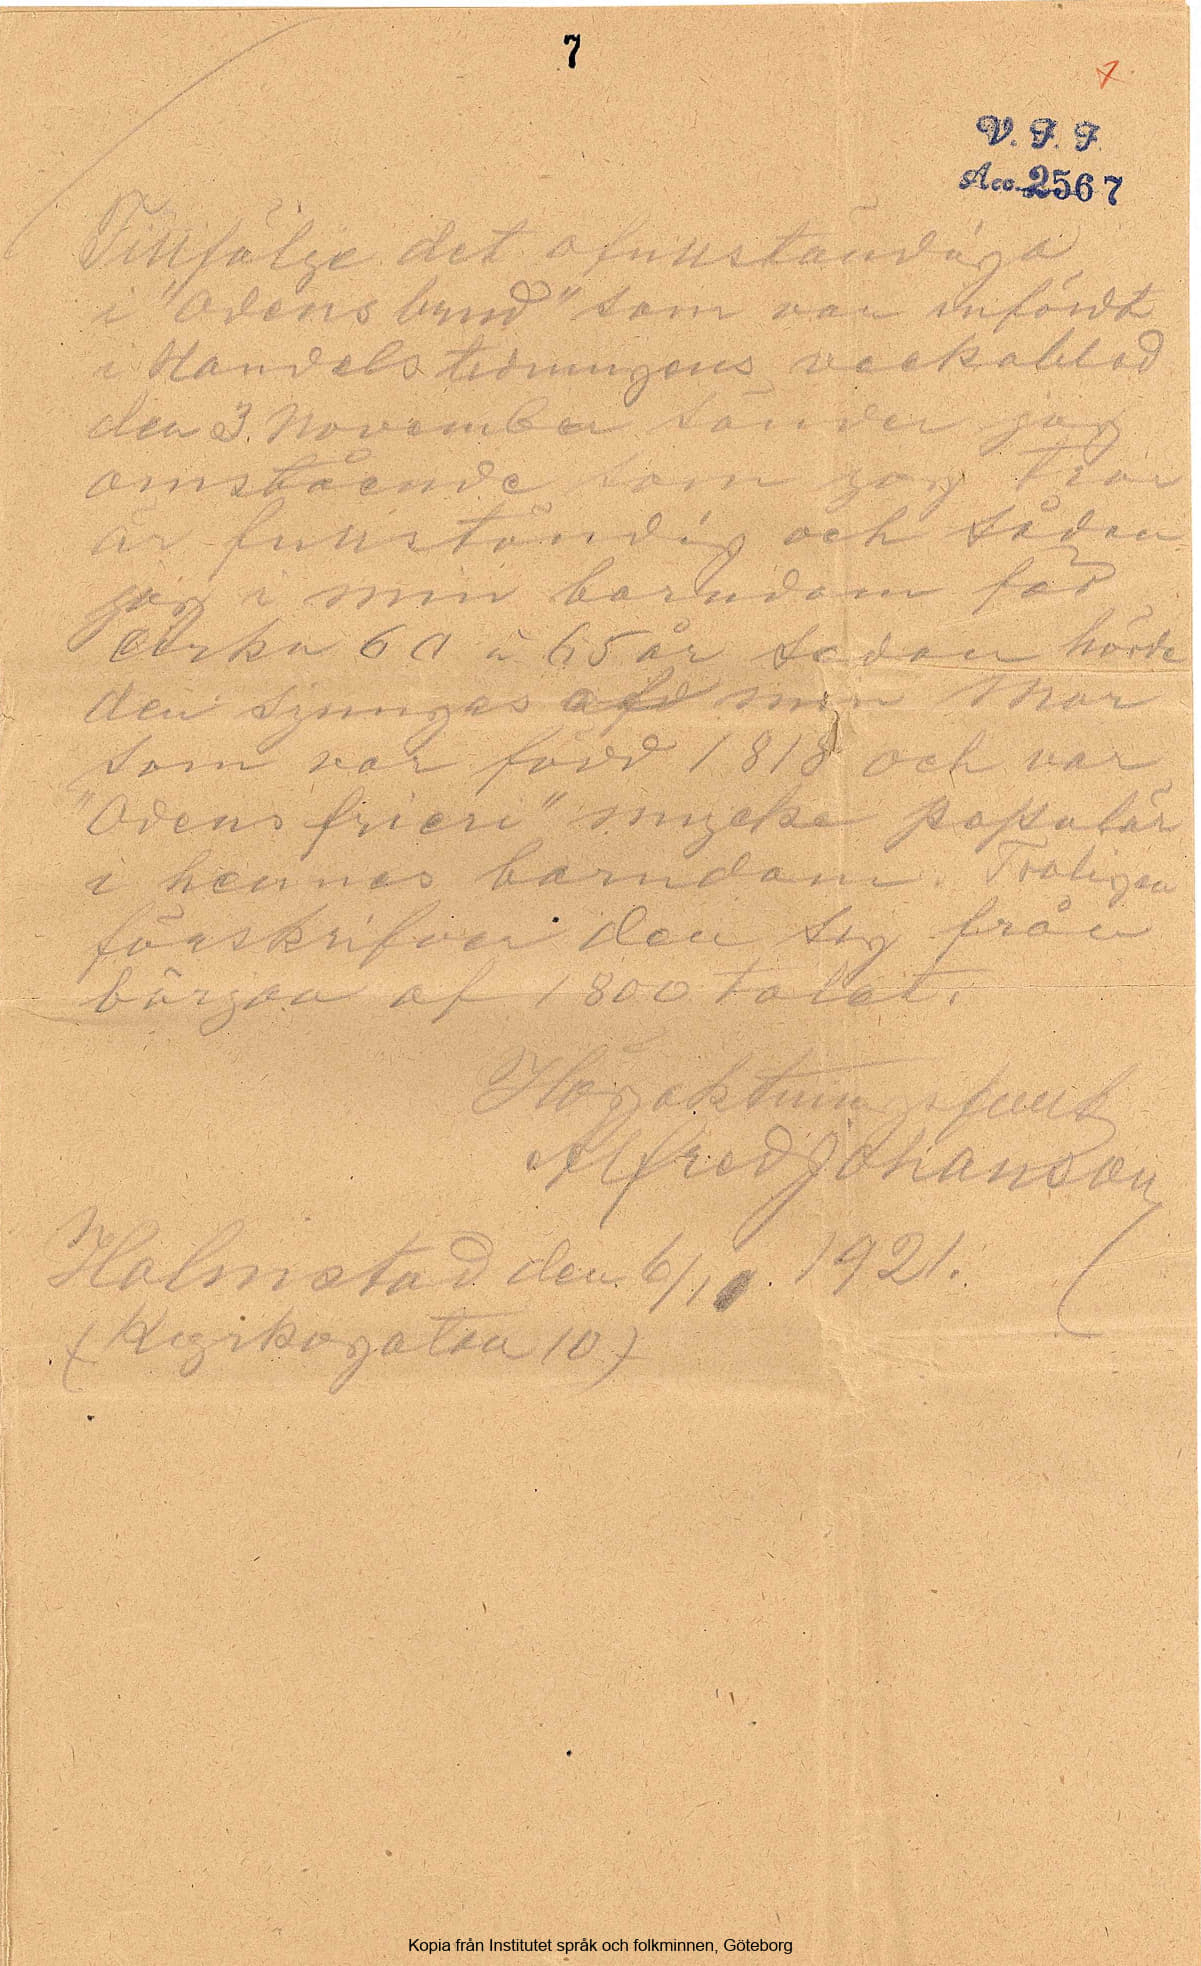 7
7
V. F. F.
Acc. 2567
Tillfölge det ofullständiga
i "Odens brud" som var infördt
i Handelstidningens veckoblad
den 3. November sänder jag
omstående som jag tror
är fullständig och sådan
jag i min barndom för
cirka 60 à 65 år sedan hörde
den sjunges af min Mor
som var född 1818 och var
"Odens frieri" mycke populär
i hennes barndom. Troligen
förskrifver den sig från
början af 1800 talet.
Högaktningsfullt
Alfred Johanson
Halmstad den 6/11 1921.
(Kyrkogatan 10)
Kopia från Institutet språk och folkminnen, Göteborg